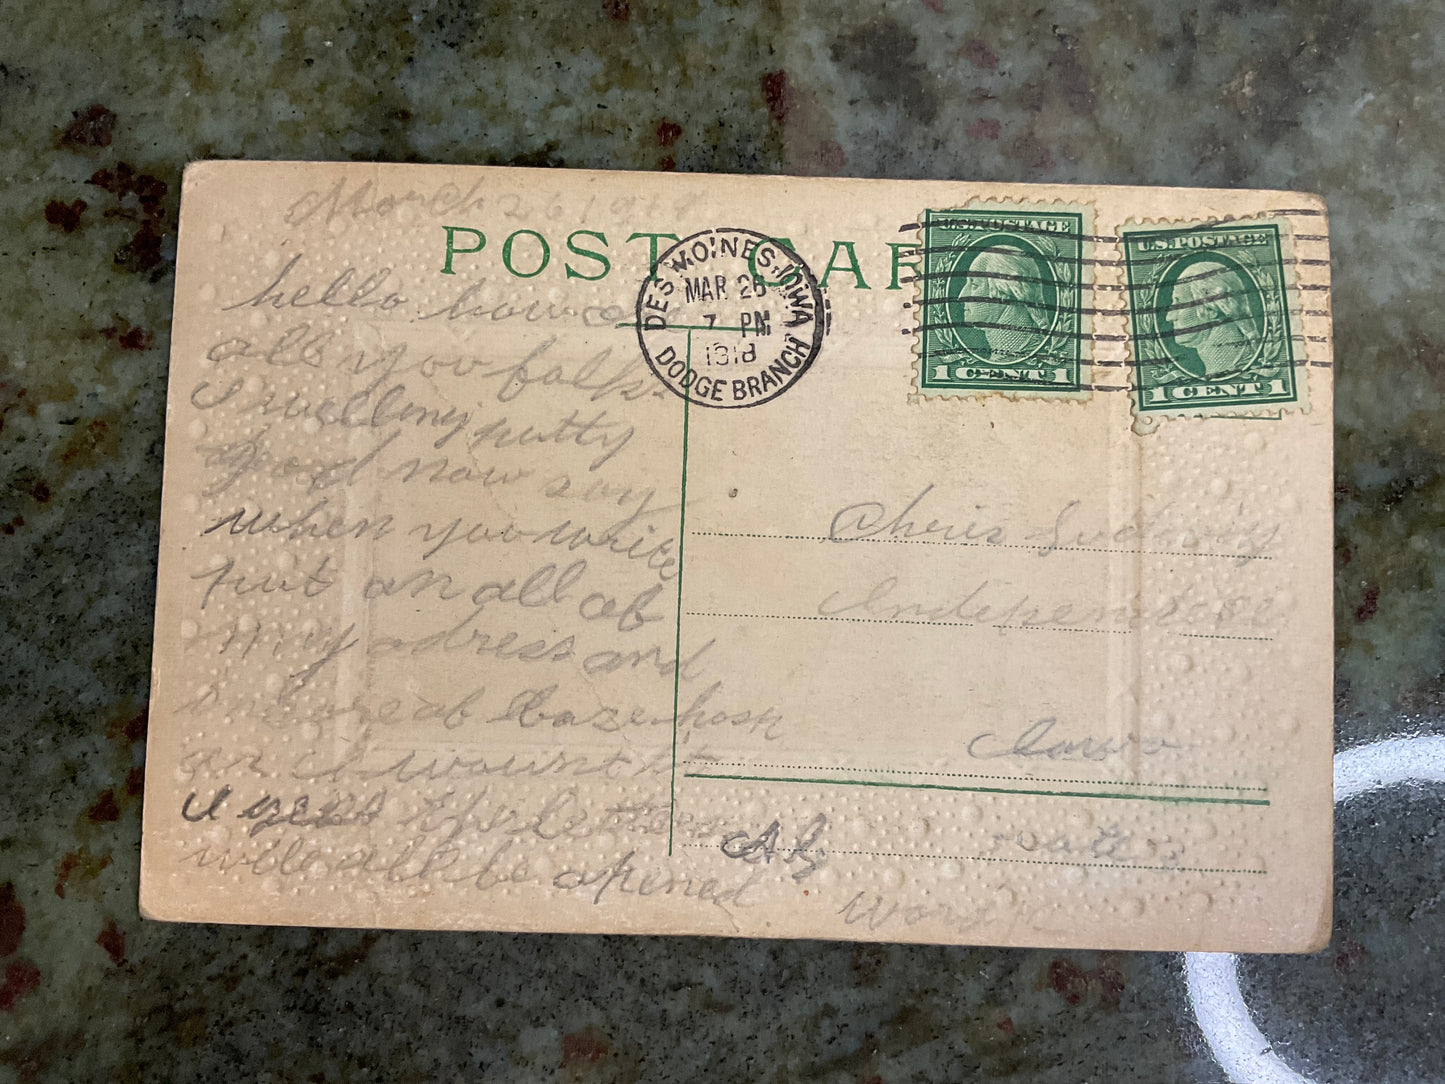 March 26 1918
POST CAR
DES MOINES. IOWA
MAR 26
7 PM
1918
DODGE BRANCH
U.S. POSTAGE
1 CENT 1
U.S. POSTAGE
1 CENT 1
hello how are
all you folks
I well my putty
good now say
when you write
put on all of
my adress and
of Baze hosp
I wount
I gess the letters
will all be opened
Chris Ludwig
Independece
Iowa
Rute 3